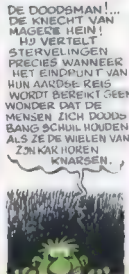 DE DOODSMAN!...
DE KNECHT VAN
MAGERE HEIN!
HIJ VERTELT
STERVELINGEN
PRECIES WANNEER
HET EINDPUNT VAN
HUN AARDSE REIS
WORDT BEREIKT GEEN
WONDER DAT DE
MENSEN ZICH DOODS
BANG SCHUIL HOUDEN
ALS ZE DE WIELEN VAN
ZIJN KAR HOREN
KNARSEN.